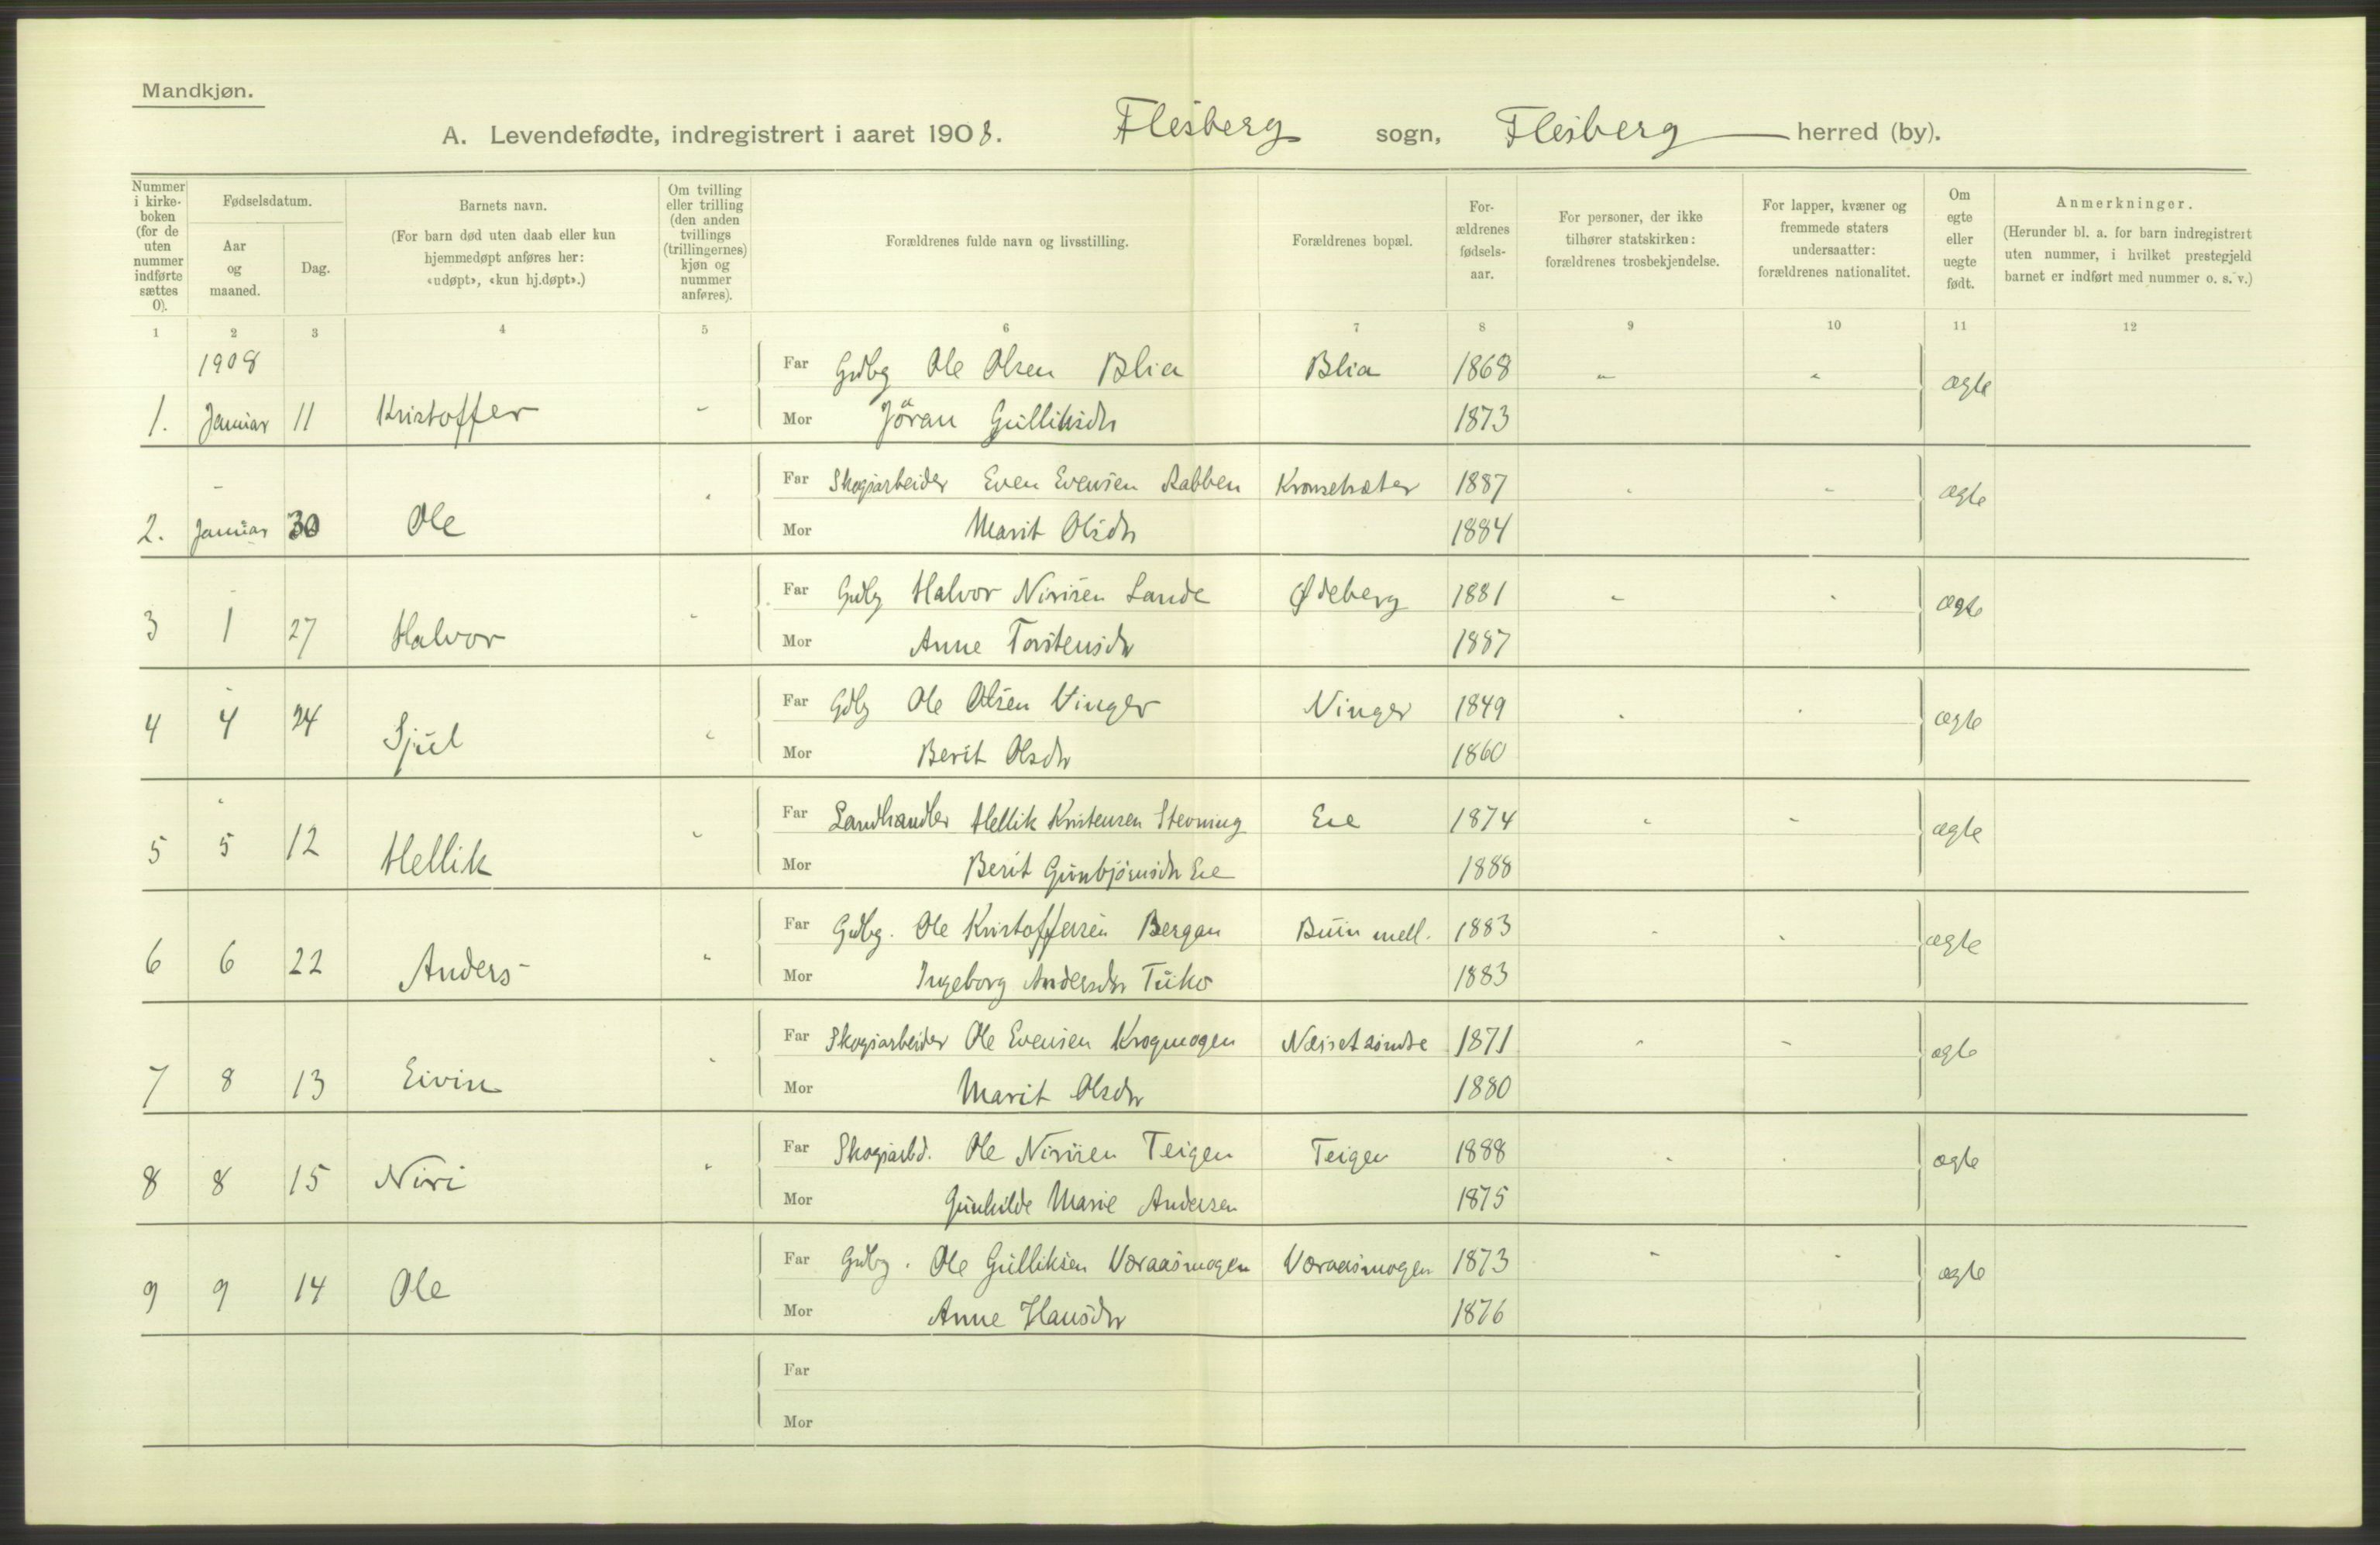 Mandkjøn.
A. Levendefødte, indregistrert i aaret 1908. Flesberg sogn, Flesberg herred (by).
Nummer i kirke- boken (for de uten nummer indførte sættes 0).
Fødselsdatum.
Aar og maaned.
Dag.
Barnets navn.
(For barn død uten daab eller kun hjemmedøpt anføres her: «udøpt», «kun hj.døpt».)
Om tvilling eller trilling (den anden tvillings (trillingernes) kjøn og nummer anføres).
Forældrenes fulde navn og livsstilling.
Forældrenes bopæl.
For- ældrenes fødsels- aar.
For personer, der ikke tilhører statskirken: forældrenes trosbekjendelse.
For lapper, kvæner og fremmede staters undersaatter: forældrenes nationalitet.
Om egte eller uegte født.
Anmerkninger.
(Herunder bl. a. for barn indregistrert uten nummer, i hvilket prestegjeld barnet er indført med nummer o. s. v.)
1 2 3 4 5 6 7 8 9 10 11 12
1908 Far Gdbg Ole Olsen Blia Blia 1868 " " ægte
1. Januar 11 Kristoffer " Mor Jöran Gulliksdr 1873
" Far Skogsarbeider Even Evensen Rabben 1887 " " ægte
2. Januar 30 Ole " Mor Marit Olsdr 1884
Far Gdbg Halvor Nirisen Lande Ødeberg 1881 " " ægte
3 1 27 Halvor " Mor Anne Torstensdr 1887
Far Gdbg Ole Olsen Vinger Vinger 1849 " " ægte
4 4 24 Sjul " Mor Berit Olsdr 1860
Far Landhandler Hellik Kristensen Stevning Eie 1874 " " ægte
5 5 12 Hellik " Mor Berit Gunbjörnsdr Eie 1888
Far Gdbg. Ole Kristoffersen Bergan Buin mell. 1883 " " ægte
6 6 22 Anders " Mor Ingeborg Andersdr 1883
Far Skogsarbeider Ole Evensen Krogmogen 1871 " " ægte
7 8 13 Eivin " Mor Marit Olsdr 1880
Far Skogsarbd. Ole Nirisen Teigen Teigen 1888 " " ægte
8 8 15 Niri " Mor Gunhilde Marie Andersen 1875
Far Gdbg. Ole Gulliksen Voraasmogen Voraasmogen 1873 " " ægte
9 9 14 Ole Mor Anne Hansdr 1876
Far
Mor